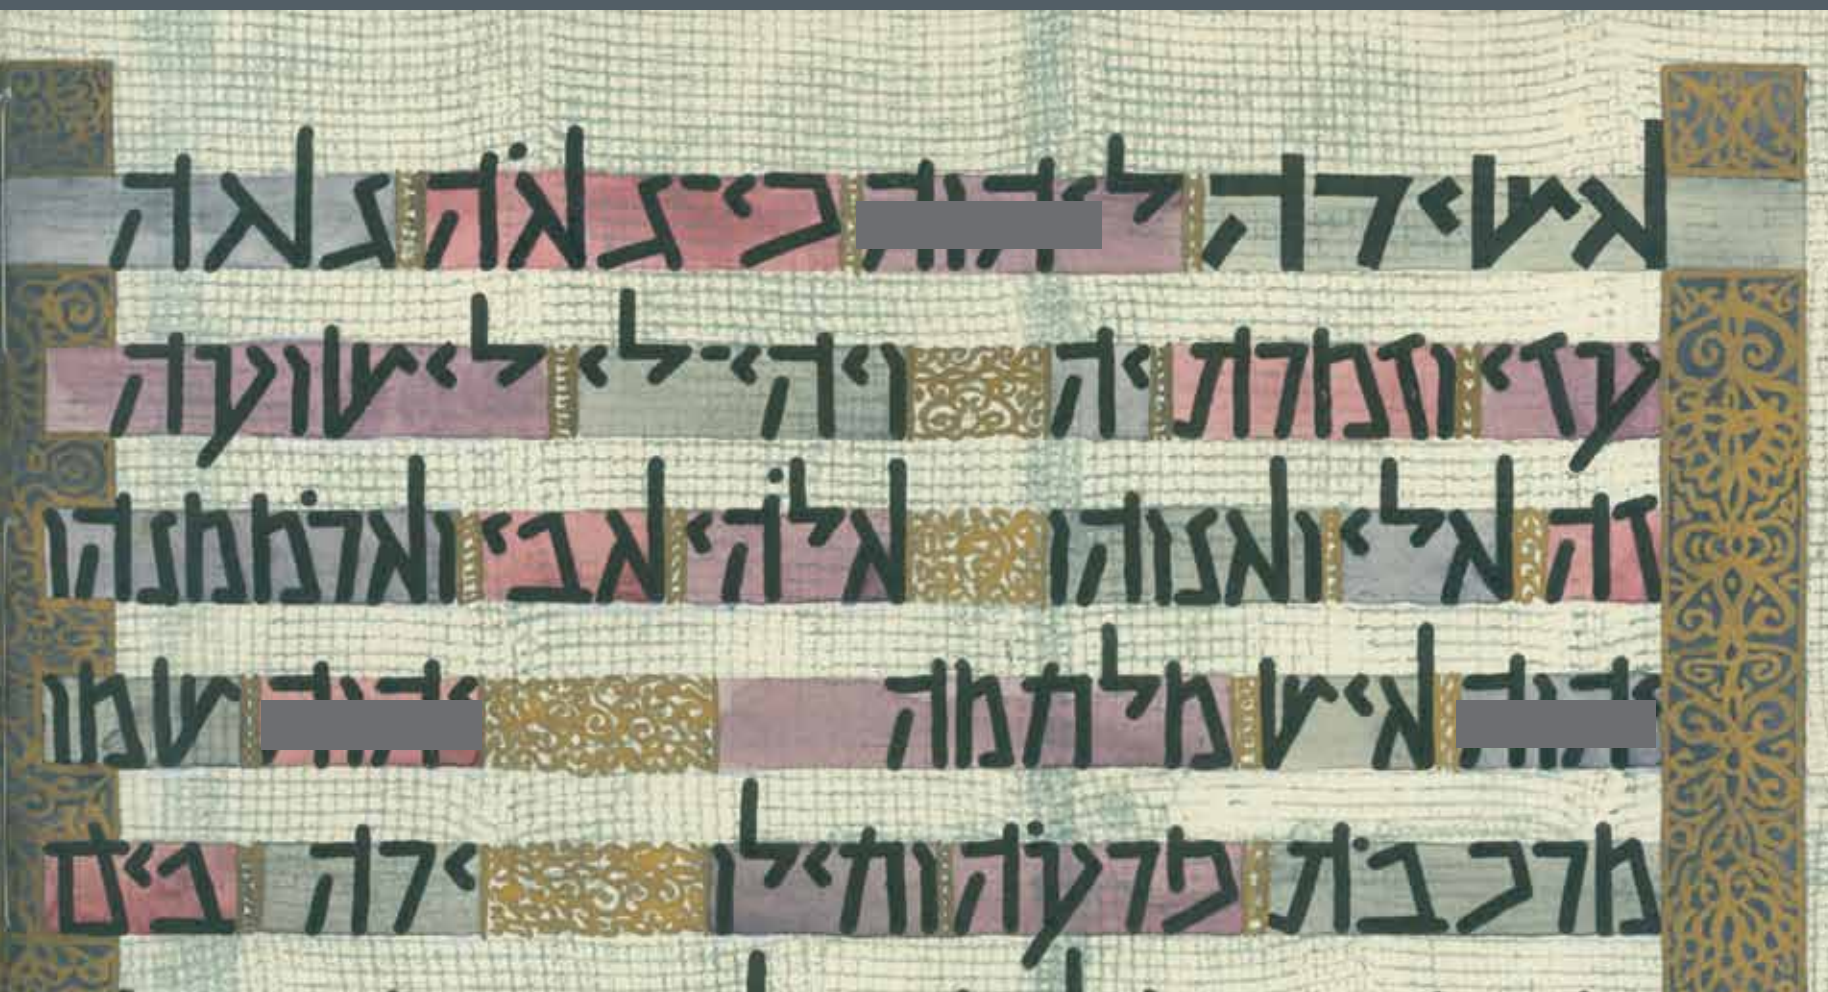 אשירה כי־גאֹה גאה
עזי וזמרת יה ויהי־לי לישועה
זה אלי ואנוהו אלֹהי אבי וארֹממנהו
איש מלחמה שמו
מרכבֹת פרעֹה וחילו ירה בים